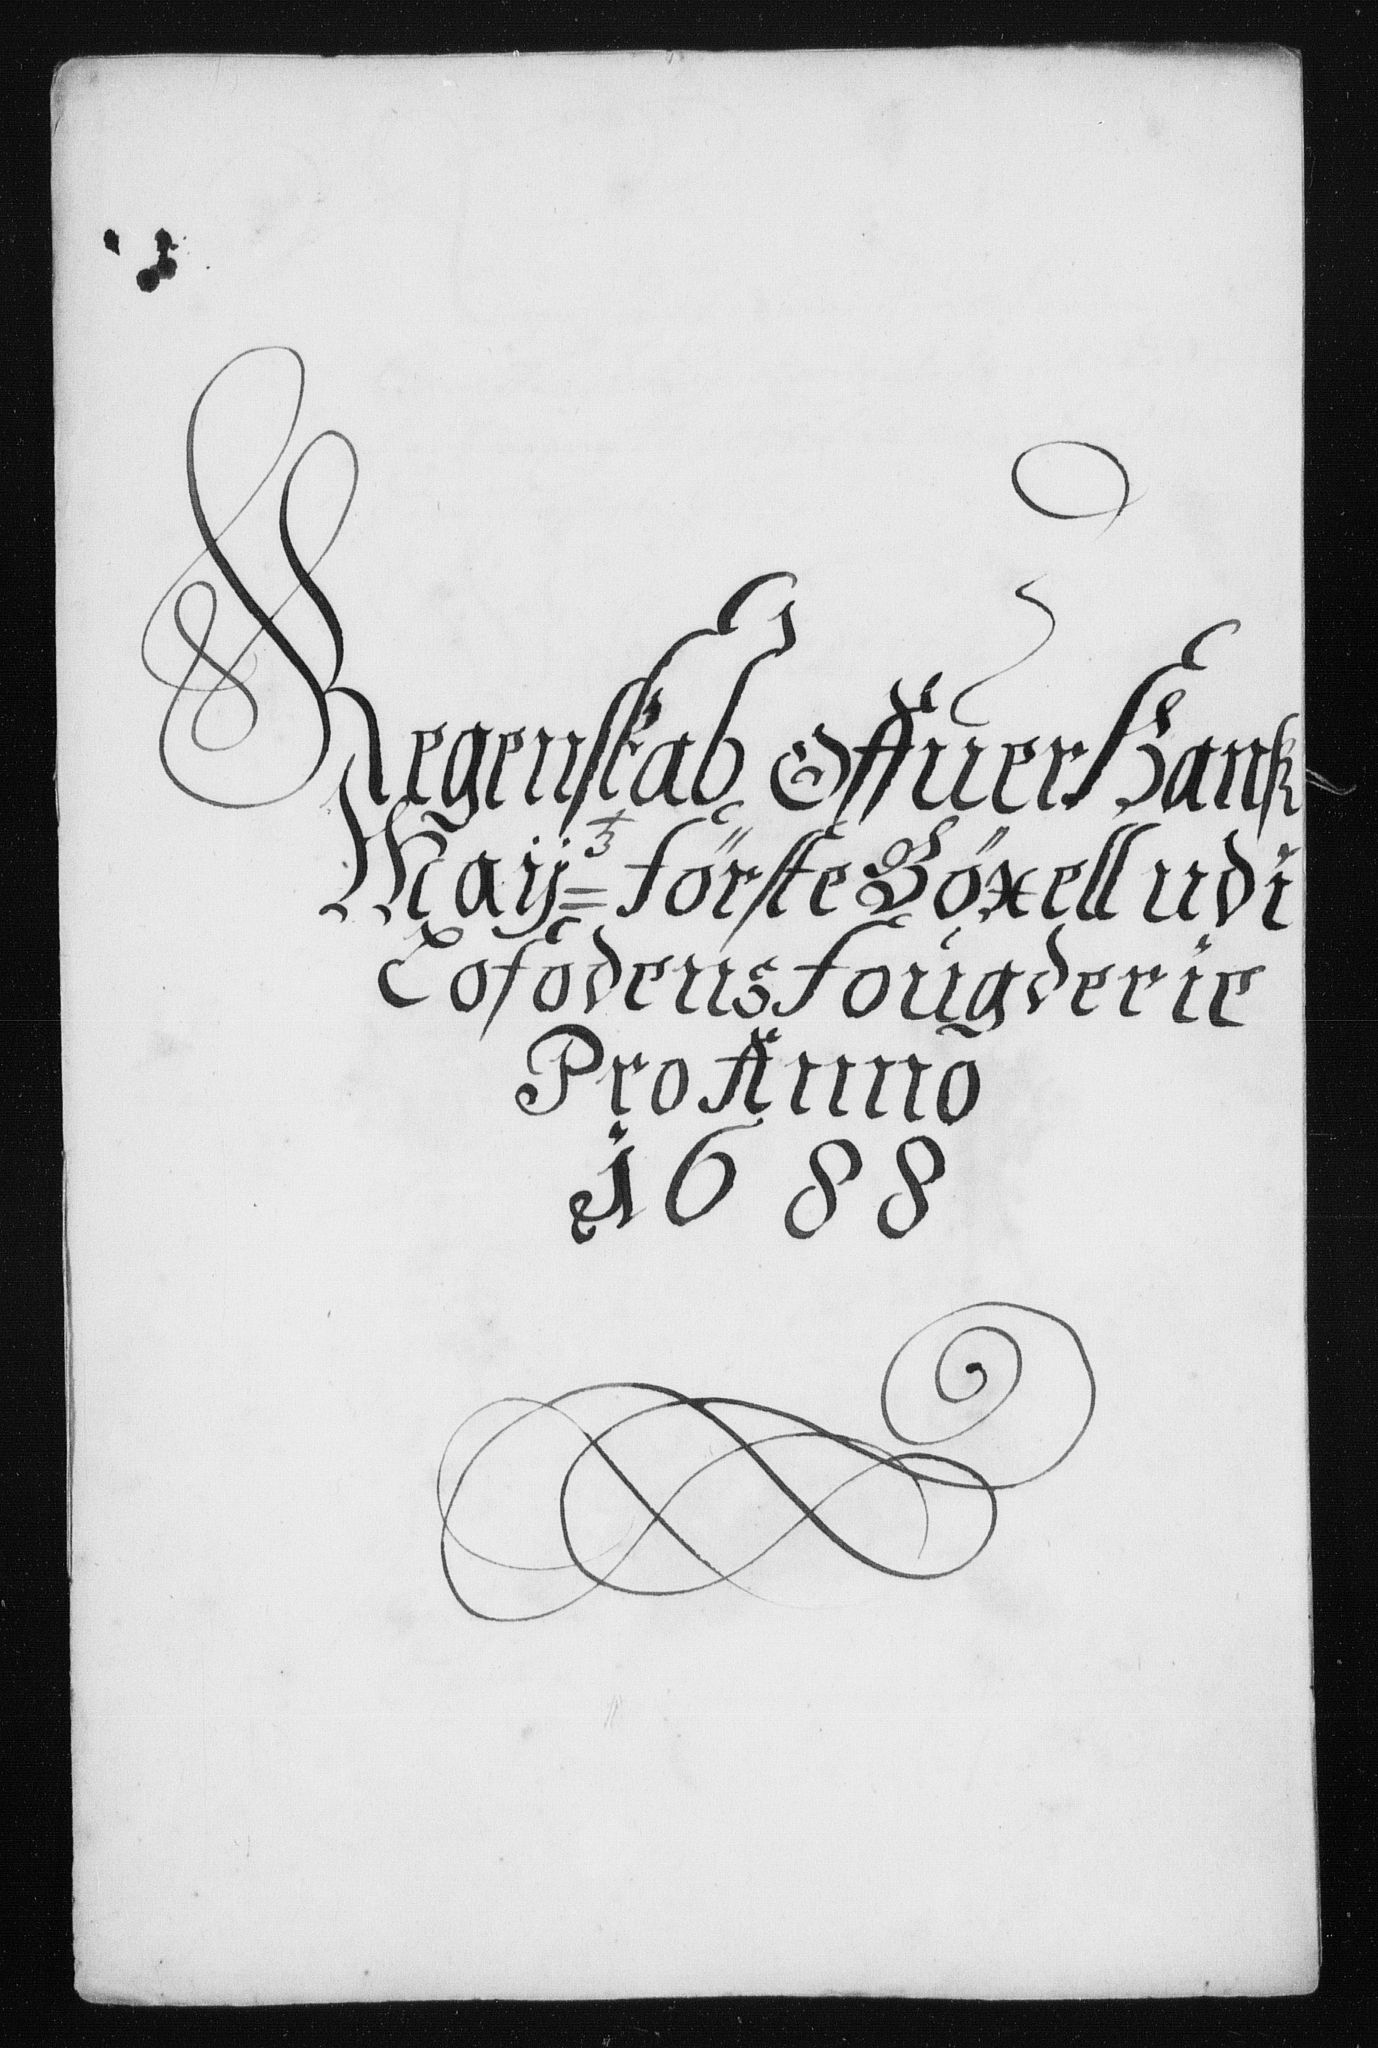 Regenskab Offuer Hans
Maij:ts förste Böxell udi
Lofodens fougderie
Pro Anno
1688